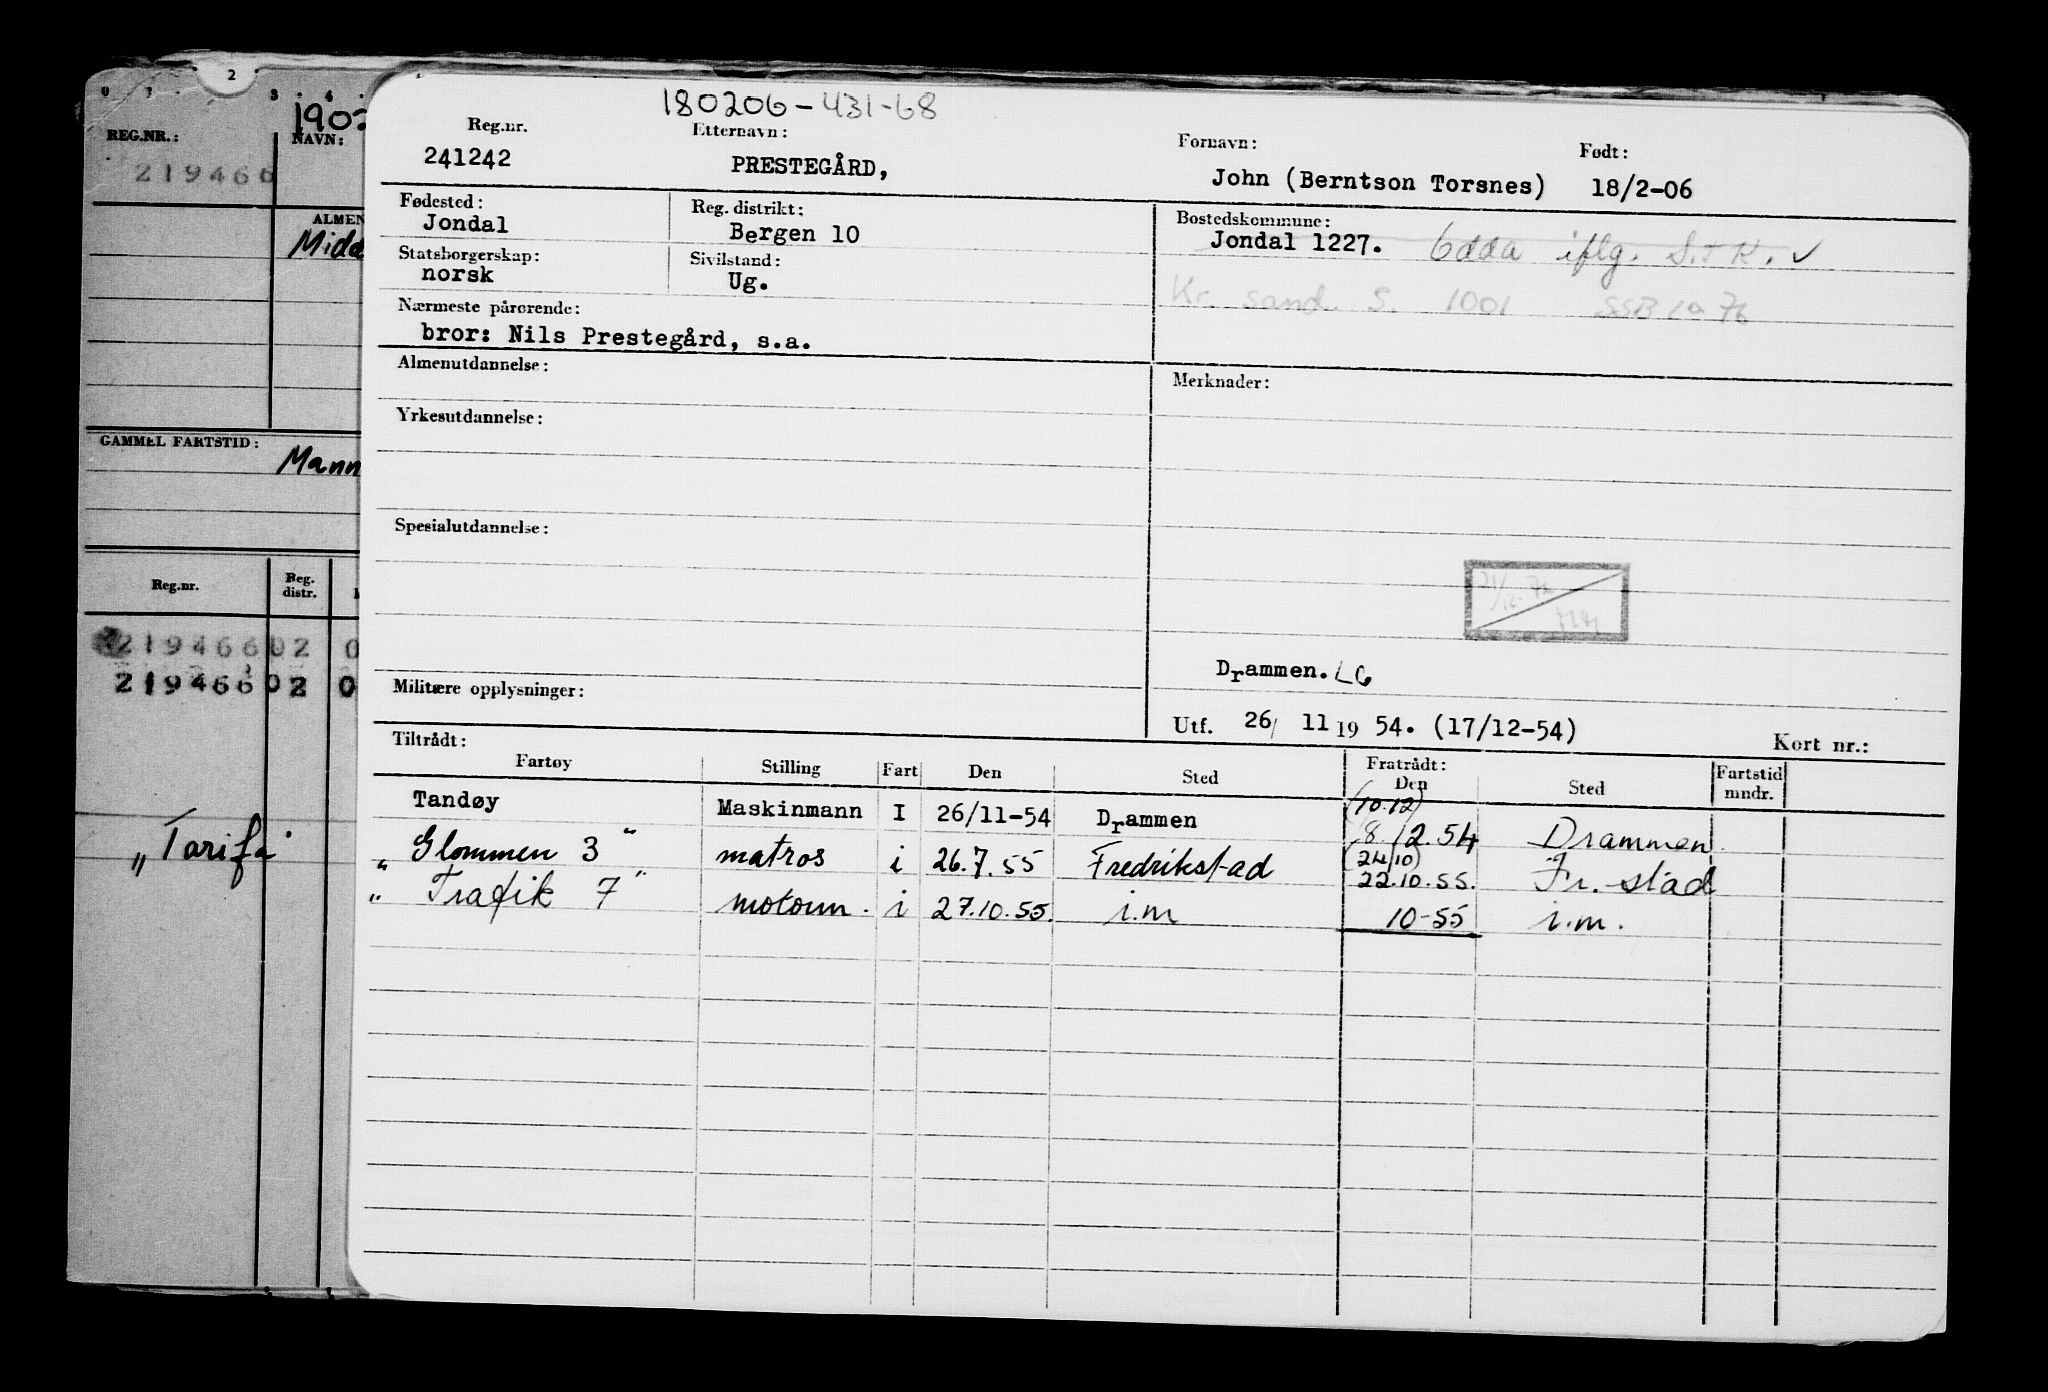 2
0 1 3 4
1902
REG.NR.:
NAVN:
219466
ALMEN
Midd
GAMMEL FARTSTID:
Mann
Reg.nr.
Reg. distr.
219466 02 0
219466 02 0
„Tarifa
180206-431-68
Reg.nr. Etternavn: Fornavn: Født:
241242 PRESTEGÅRD, John (Berntson Torsnes) 18/2-06
Fødested: Reg. distrikt: Bostedskommune:
Jondal Bergen 10 Jondal 1227. Odda iflg. S.T.K. ✓
Statsborgerskap: Sivilstand:
norsk Ug. Kr. sand. S. 1001 SSB 10 76
Nærmeste pårørende:
bror: Nils Prestegård, s.a.
Almenutdannelse: Merknader:
Yrkesutdannelse:
Spesialutdannelse:
Drammen. LG
Militære opplysninger:
Utf. 26/ 11 19 54. (17/12-54) Kort nr.:
Tiltrådt: Fratrådt:
Fartøy Stilling Fart Den Sted Den Sted Fartstid mndr.
(10.12)
Tandøy Maskinmann I 26/11-54 Drammen 8.12.54 Drammen
(24/10)
„Glommen 3" matros i 26.7.55 Fredrikstad 22.10.55. Fr.stad
„Trafik 7" motorm. i 27.10.55. i.m 10-55 i.m.